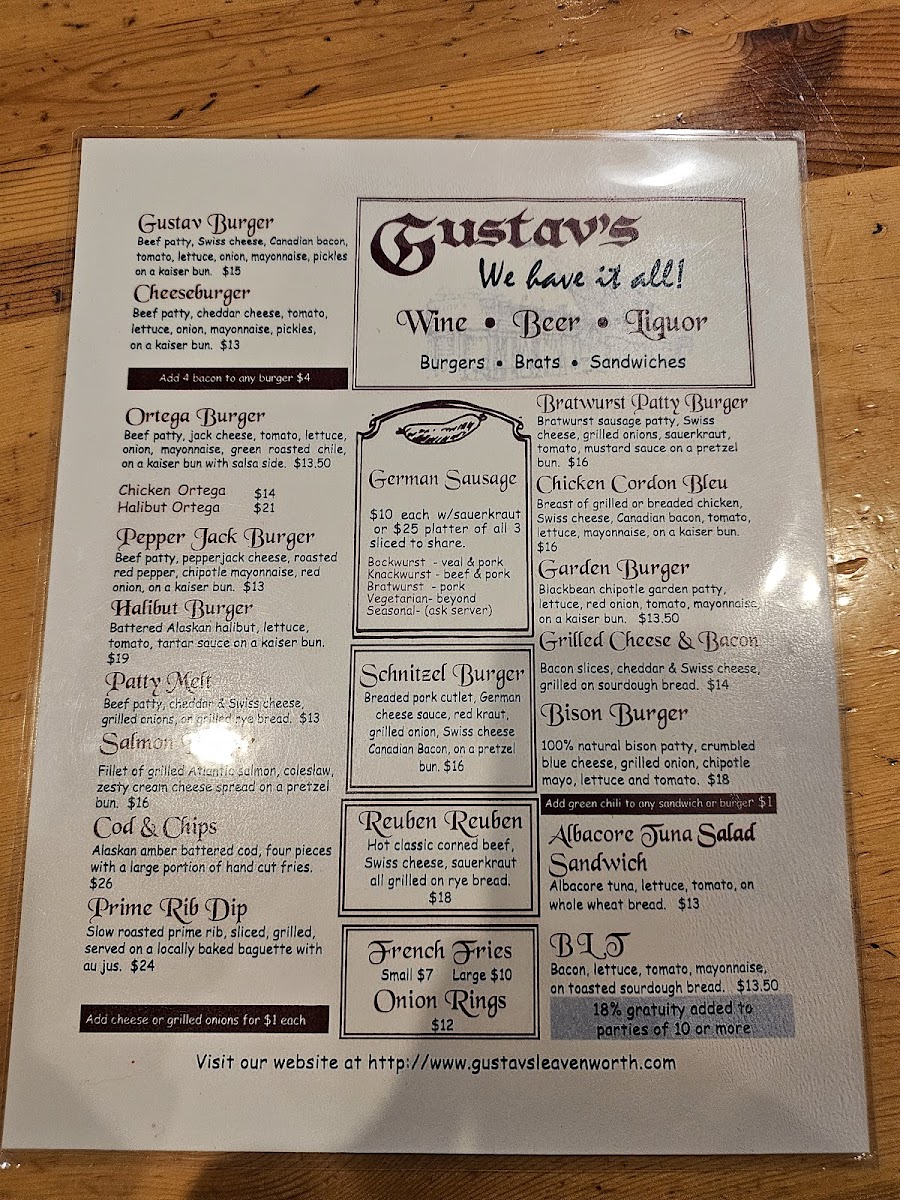 Gustav Burger
Beef patty, Swiss cheese, Canadian bacon,
tomato, lettuce, onion, mayonnaise, pickles
on a kaiser bun. $15
Cheeseburger
Beef patty, cheddar cheese, tomato,
lettuce, onion, mayonnaise, pickles,
on a kaiser bun. $13
Add 4 bacon to any burger $4
Ortega Burger
Beef patty, jack cheese, tomato, lettuce,
onion, mayonnaise, green roasted chile,
on a kaiser bun with salsa side. $13.50
Chicken Ortega $14
Halibut Ortega $21
Pepper Jack Burger
Beef patty, pepperjack cheese, roasted
red pepper, chipotle mayonnaise, red
onion, on a kaiser bun. $13
Halibut Burger
Battered Alaskan halibut, lettuce,
tomato, tartar sauce on a kaiser bun.
$19
Patty Melt
Beef patty, cheddar & Swiss cheese,
grilled onions, on grilled rye bread. $13
Salmon
Fillet of grilled Atlantic salmon, coleslaw,
zesty cream cheese spread on a pretzel
bun. $16
Cod & Chips
Alaskan amber battered cod, four pieces
with a large portion of hand cut fries.
$26
Prime Rib Dip
Slow roasted prime rib, sliced, grilled,
served on a locally baked baguette with
au jus. $24
Add cheese or grilled onions for $1 each
Gustav's
We have it all!
Wine • Beer • Liquor
Burgers • Brats • Sandwiches
German Sausage
$10 each w/sauerkraut
or $25 platter of all 3
sliced to share.
Bockwurst - veal & pork
Knackwurst - beef & pork
Bratwurst - pork
Vegetarian- beyond
Seasonal- (ask server)
Schnitzel Burger
Breaded pork cutlet, German
cheese sauce, red kraut,
grilled onion, Swiss cheese
Canadian Bacon, on a pretzel
bun. $16
Reuben Reuben
Hot classic corned beef,
Swiss cheese, sauerkraut
all grilled on rye bread.
$18
French Fries
Small $7 Large $10
Onion Rings
$12
Bratwurst Patty Burger
Bratwurst sausage patty, Swiss
cheese, grilled onions, sauerkraut,
tomato, mustard sauce on a pretzel
bun. $16
Chicken Cordon Bleu
Breast of grilled or breaded chicken,
Swiss cheese, Canadian bacon, tomato,
lettuce, mayonnaise, on a kaiser bun.
$16
Garden Burger
Blackbean chipotle garden patty,
lettuce, red onion, tomato, mayonnaise,
on a kaiser bun. $13.50
Grilled Cheese & Bacon
Bacon slices, cheddar & Swiss cheese,
grilled on sourdough bread. $14
Bison Burger
100% natural bison patty, crumbled
blue cheese, grilled onion, chipotle
mayo, lettuce and tomato. $18
Add green chili to any sandwich or burger $1
Albacore Tuna Salad
Sandwich
Albacore tuna, lettuce, tomato, on
whole wheat bread. $13
BLT
Bacon, lettuce, tomato, mayonnaise,
on toasted sourdough bread. $13.50
18% gratuity added to
parties of 10 or more
Visit our website at http://www.gustavsleavenworth.com